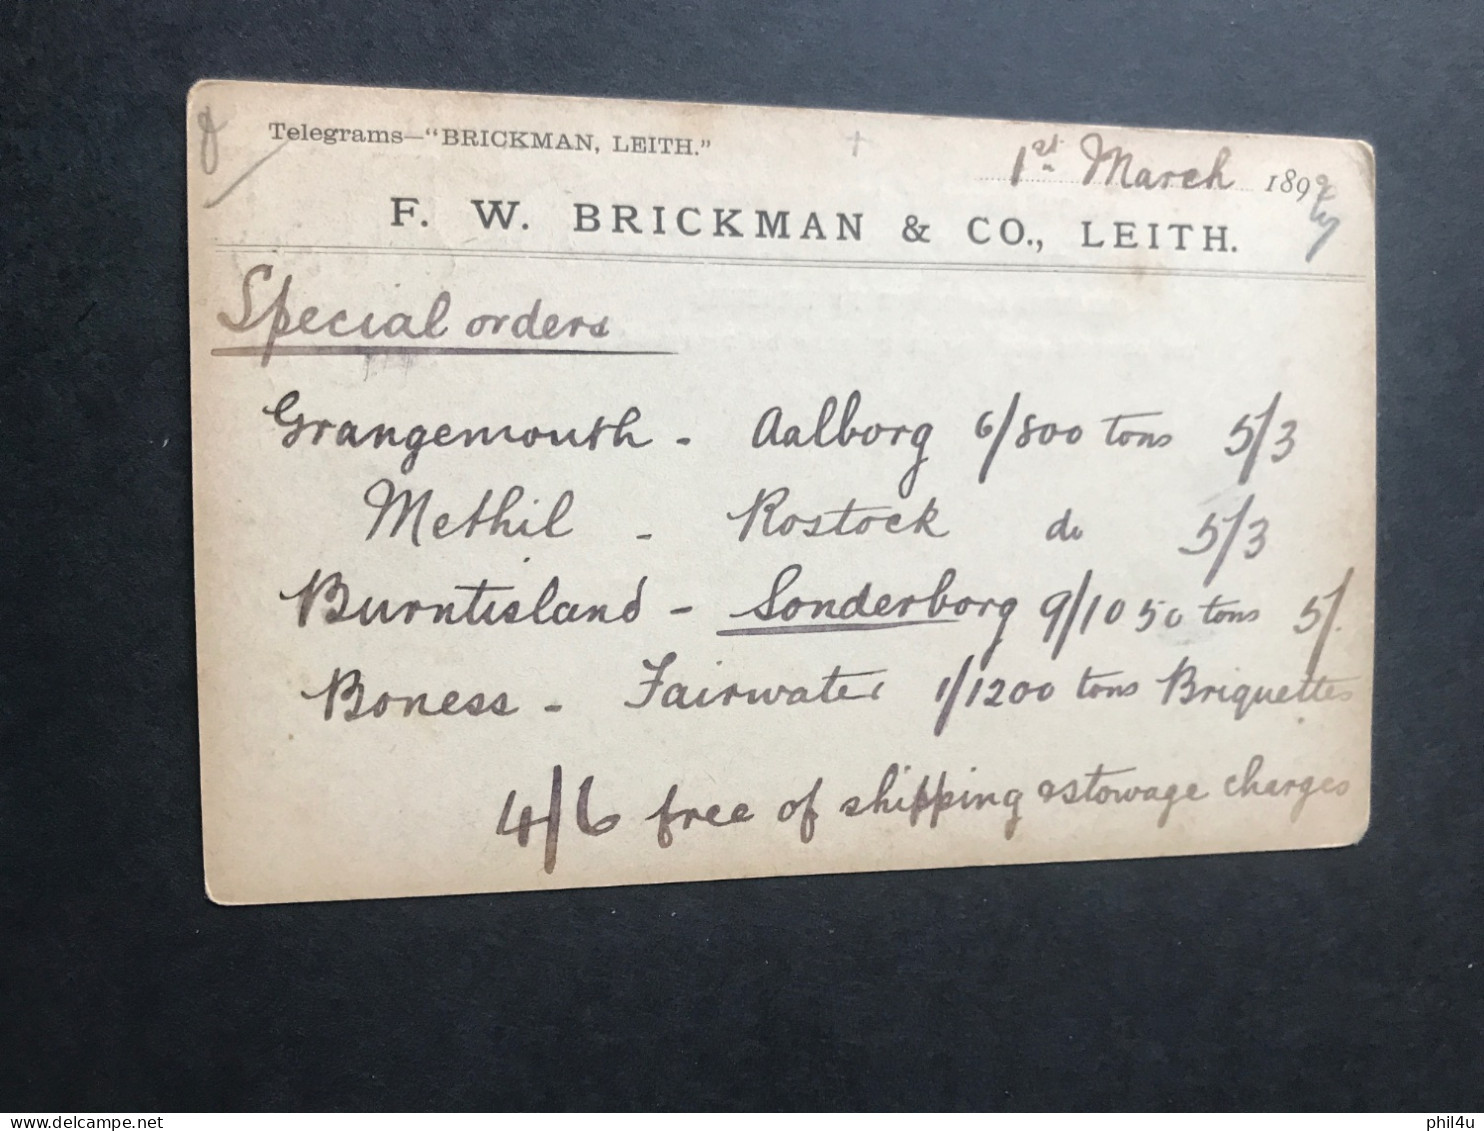 Telegrams—"BRICKMAN, LEITH."
1st March 1899
F. W. BRICKMAN & CO., LEITH.
Special orders
Grangemouth - Aalborg 6/800 tons 5/3
Methil - Rostock do 5/3
Burntisland - Sonderborg 9/1050 tons 5/.
Boness - Fairwater 1/1200 tons Briquettes
4/6 free of shipping & stowage charges
phil4u